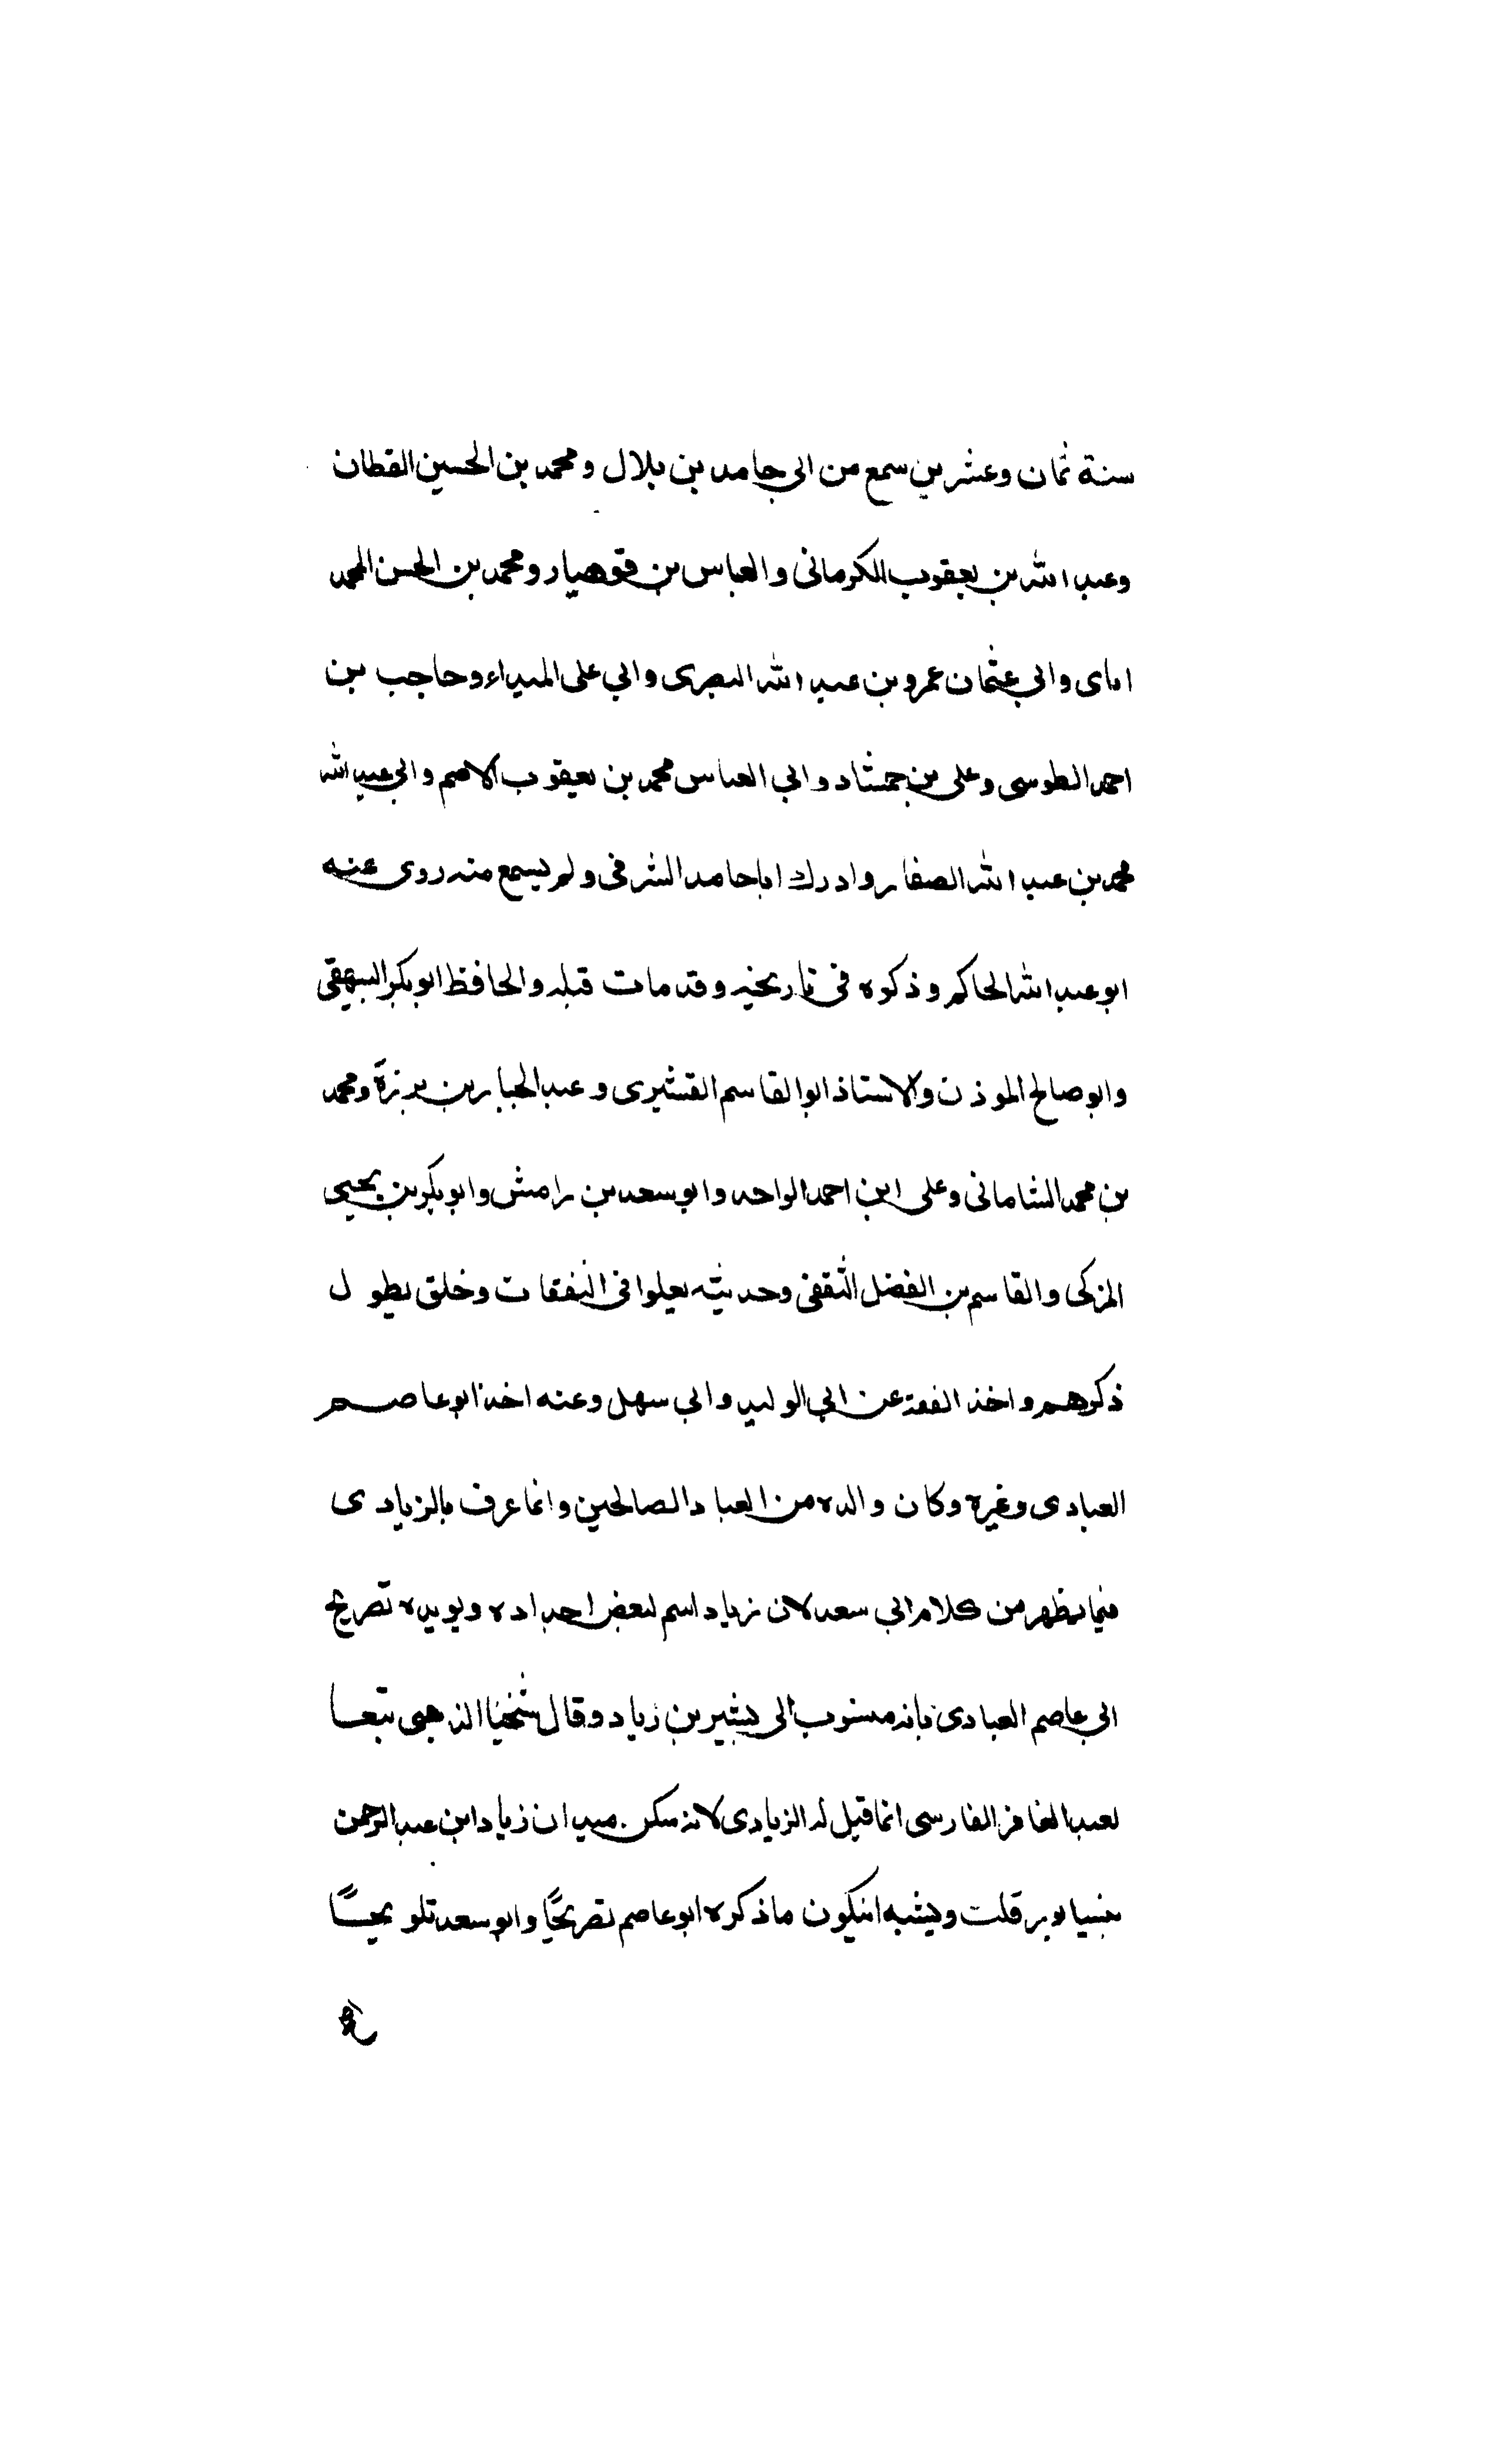 سنة ثمان وعشرين سمع من ابي حامد بن بلال ومحمد بن الحسين القطان
وعبد الله بن يعقوب الكرمانى والعباس بن قوهيار ومحمد بن الحسن المحمد
اباى وابي عثمان عمرو بن عبد الله البصرى وابي على الميداءوحاجب بن
احمد الطوسى وعلى بن حمشاد وابي العباس محمد بن يعقوب الاصم وابي عبد الله
محمد بن عبد الله الصفار وادرك اباحامد الشرفى ولم يسمع منه روى عنه
ابو عبد الله الحاكم وذكره فى تاريخه وقد مات قبله والحافظ ابو بكر البيهقى
وابو صالح الموذن والاستاذ ابوا لقاسم القشيرى وعبد الجبار بن برزة ومحمد
بن محمد الشامانى وعلى ابن احمد الواحد وابو سعد بن رامش وابو بكر بن يحيى
المزكى والقاسم بن الفضل الثقفى وحديثه يعلوا فى الثقفات وخلق يطول
ذكرهم واخذ الفقه عن ابي الوليد وابي سهل وعنه اخذ ابو عاصم
العبادى وغيره وكان والده من العباد الصالحين وانما عرف بالزيادى
فيما يظهر من كلام ابي سعد لان زياد اسم لبعض اجداده ويويده تصريح
ابي عاصم العبادى بانه منسوب الى بشير بن زياد وقال شيخنا الذهبى تبعا
لعبد الغافر الفارسى انما قيل له الزيادى لانه سكن ميدان زياد ابن عبد الرحمن
بنيسابور قلت ويشبه ان يكون ما ذكره ابو عاصم تصريحًا وابو سعد تلويحًا